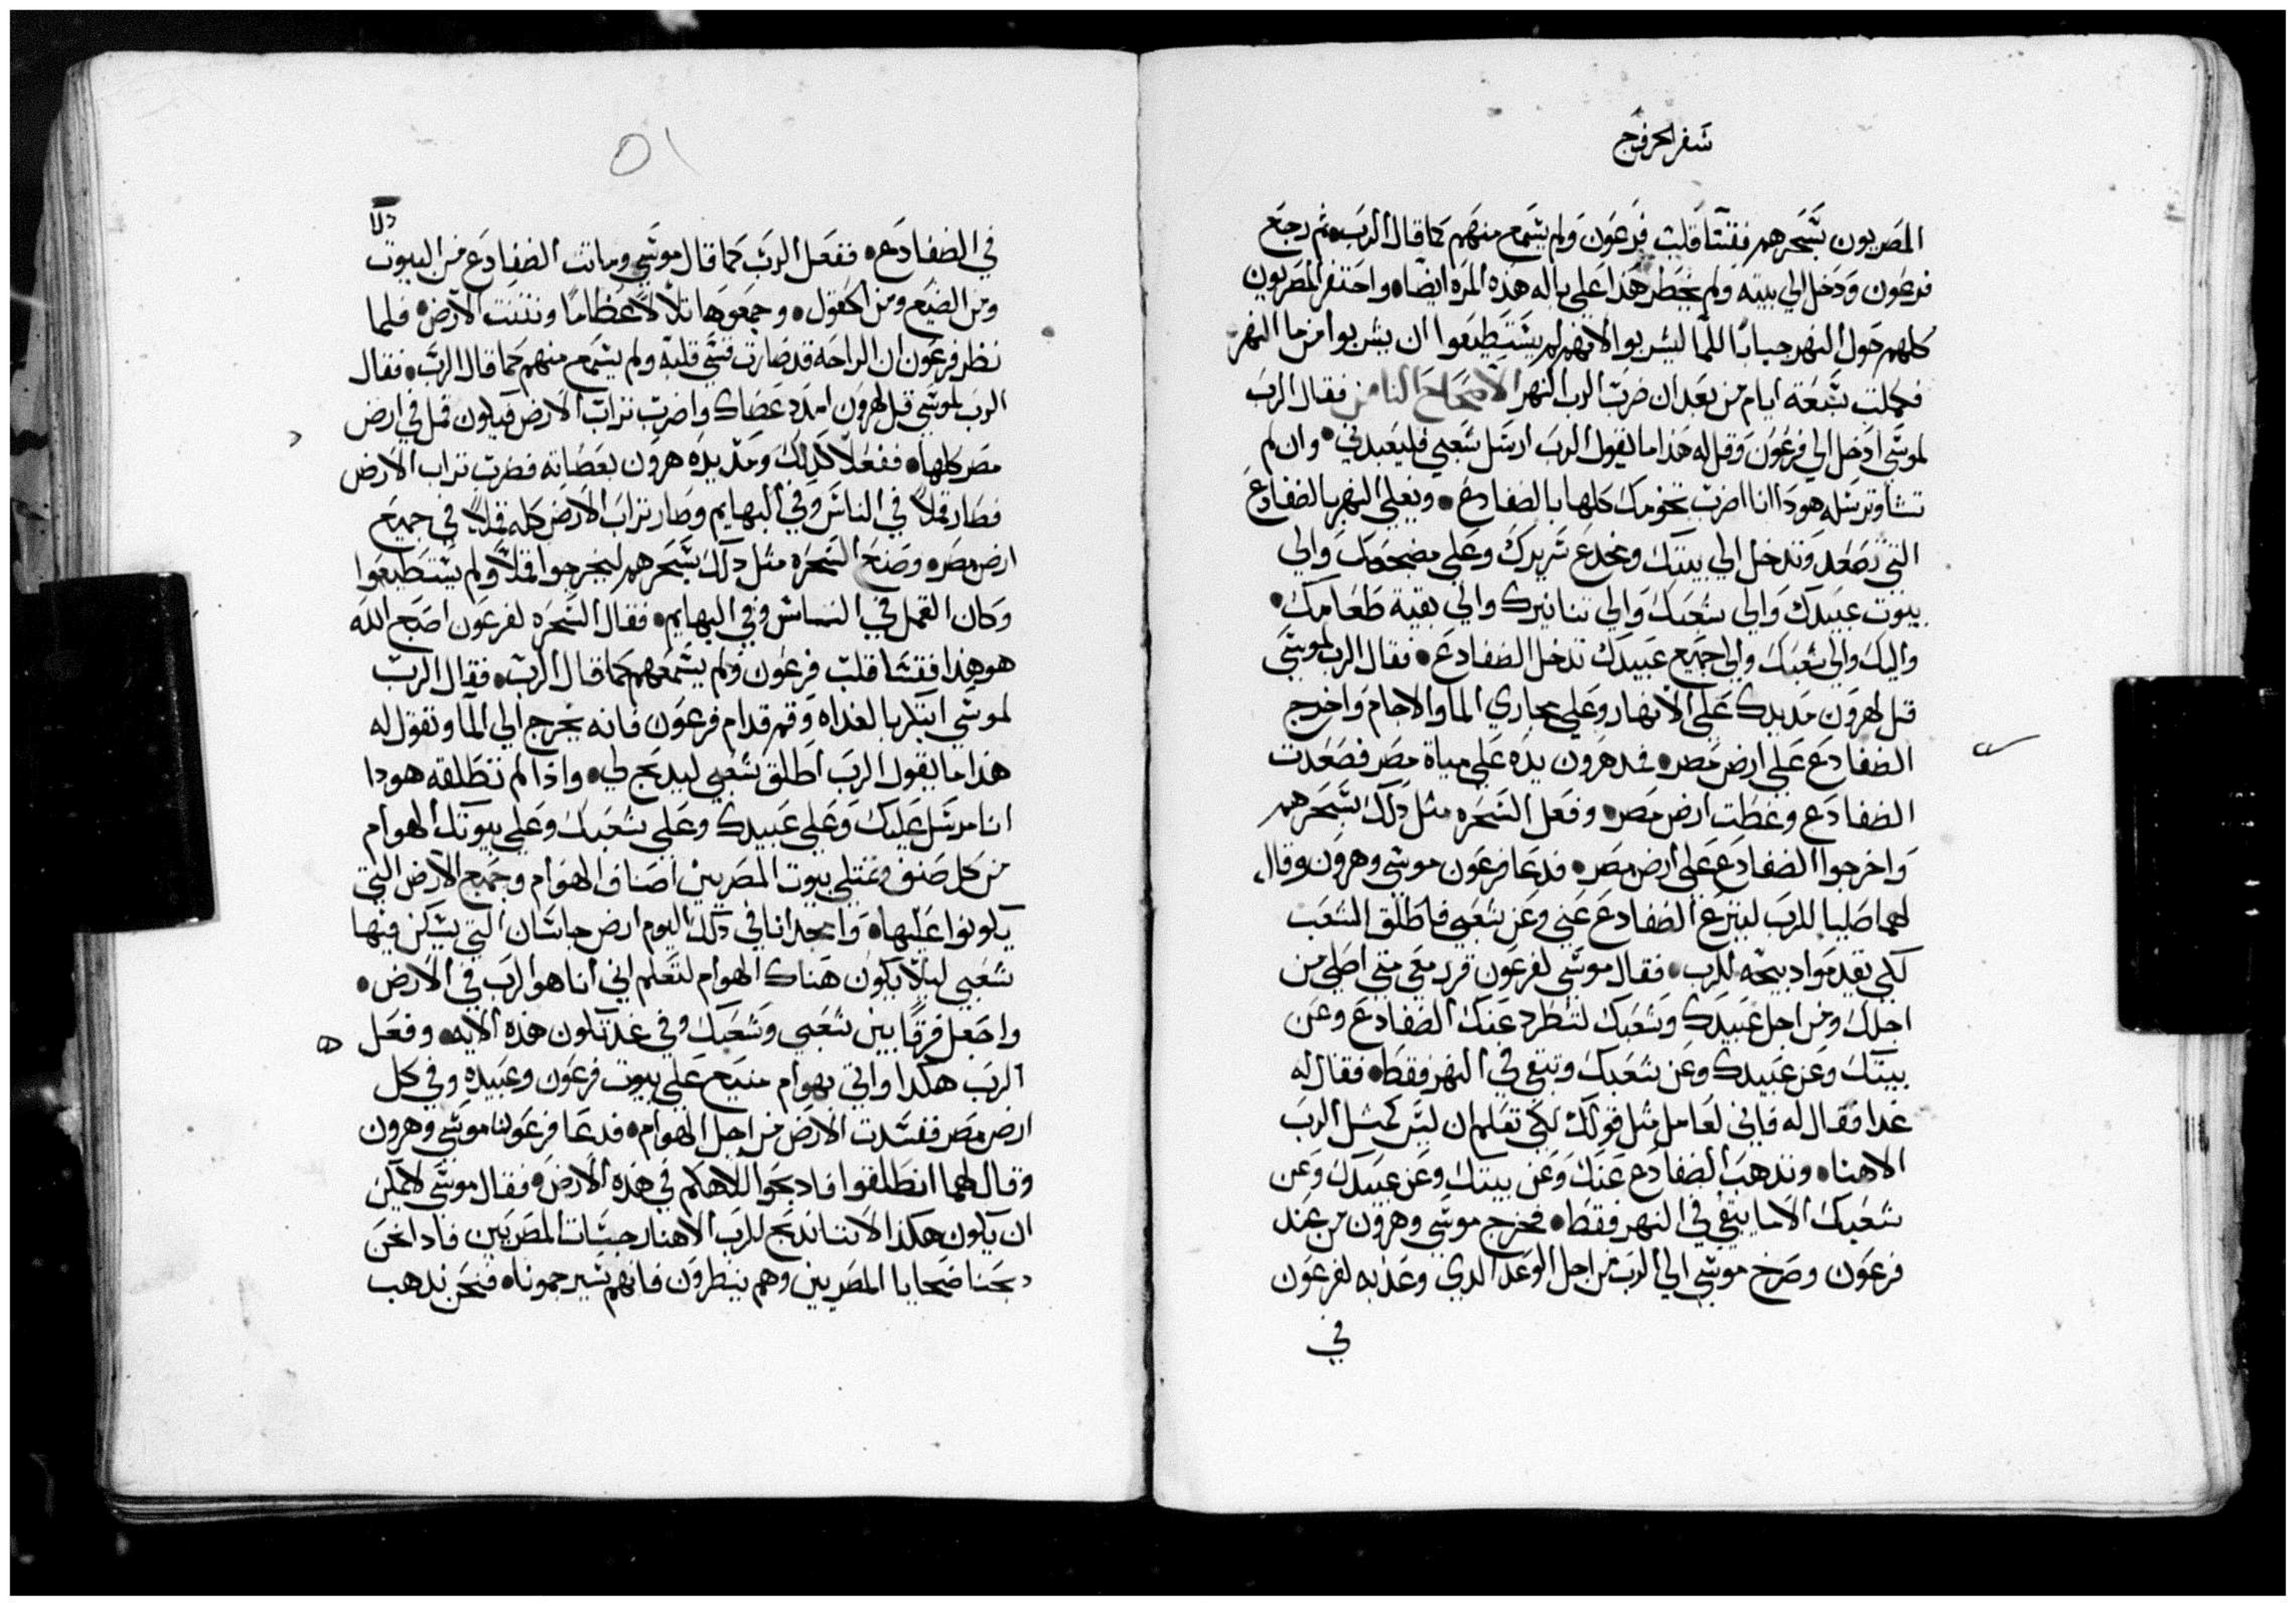 سفر الخروج
المصريون بسحرهم فقسا قلب فرعون ولم يسمع منهم كما قال الرب ثم رجع
فرعون ودخل الي بيته ولم يخطر هذا علي باله هذه المره ايضا واحتفر المصريون
كلهم حول النهر للما ليشربوا لانهم لم يستطيعوا ان يشربوا من ما النهر
فكملت سبعة ايام من بعد ان ضرب الرب النهر الاصحاح الثامن فقال الرب
لموسي ادخل الي فرعون وقل له هذا ما يقول الرب ارسل شعبي فليعبدني وان لم
تشا وترسله هودا انا اضرب تخومك كلها بالضفادع ويغلي النهر بالضفادع
التي تصعد وتدخل الي بيتك ومخدع سريرك وعلي مضجعك والي
بيوت عبيدك والي شعبك والي تنانيرك والي بقية طعامك
واليك والي شعبك والي جميع عبيدك تدخل الضفادع فقال الرب لموسي
قل لهرون مد يدك علي الانهار وعلي مجاري الما والاجام واخرج
الضفادع علي ارض مصر فمد هرون يده علي مياة مصر فصعدت
الضفادع وغطت ارض مصر وفعل السحره مثل ذلك بسحرهم
واخرجوا الضفادع علي ارض مصر فدعا فرعون موسي وهرون وقال
لهما صليا للرب لينزع الضفادع عني وعن شعبي فاطلق الشعب
لكي يقدموا دبيحه للرب فقال موسي لفرعون قرر معي متي اصلي من
اجلك ومن اجل عبيدك وشعبك لتطرد عنك الضفادع وعن
بيتك وعن عبيدك وعن شعبك وتبقي في النهر فقط فقال له
غدا فقال له فاني لعامل مثل قولك لكي تعلم ان ليس كمثل الرب
الاهنا وتدهب الضفادع عنك وعن بيتك وعن عبيدك وعن
شعبك الا ما يبقي في النهر فقط فخرج موسي وهرون من عند
فرعون وصرخ موسي الي الرب من اجل الوعد الدي وعد به لفرعون
في
٥١
في الضفادع ففعل الرب كما قال موسي وماتت الضفادع من البيوت
ومن الضيع ومن الحقول وجمعوها تلالا عظاما ونتنت الارض فلما
نظر فرعون ان الراحه قد صارت قسي قلبه ولم يسمع منهم كما قال الرب فقال
الرب لموسي قل لهرون امدد عصاك واضرب تراب الارض فيكون قمل في ارض
مصر كلها ففعلا كذلك ومد يده هرون بعصاته فضرب تراب الارض
فصار قملا في الناس وفي البهايم وصار تراب الارض كله قملا في جميع
ارض مصر وصنع السحره مثل ذلك بسحرهم ليخرجوا قملا ولم يستطيعوا
وكان القمل في الناس وفي البهايم فقال السحره لفرعون اصبع الله
هو هذا فقسا قلب فرعون ولم يسمعهم كما قال الرب فقال الرب
لموسي ابتكر بالغداه وقم قدام فرعون فانه يخرج الي الما وتقول له
هذا ما يقول الرب اطلق شعبي ليدبح لي واذا لم تطلقه هودا
انا مرسل عليك وعلي عبيدك وعلي شعبك وعلي بيوتك الهوام
من كل صنف وتمتلي بيوت المصريين اصناف الهوام وجميع الارض التي
يكونوا عليها وامجد انا في ذلك اليوم ارض جاشان التي يسكن فيها
شعبي ليلا يكون هناك الهوام لتعلم اني انا هو الرب في الارض
واجعل فرقا بين شعبي وشعبك وفي غد تكون هذه الايه وفعل
الرب هكذا واتي بهوام منيع علي بيوت فرعون وعبيده وفي كل
ارض مصر ففسدت الارض من اجل الهوام فدعا فرعون موسي وهرون
وقال لهما انطلقوا فادبحوا لالاهكم في هذه الارض فقال موسي لا يمكن
ان يكون هكذا لاننا ندبح للرب الاهنا رجسات المصريين فادا نحن
دبحنا ضحايا المصريين وهم ينظرون فانهم سيرجمونا فنحن ندهب